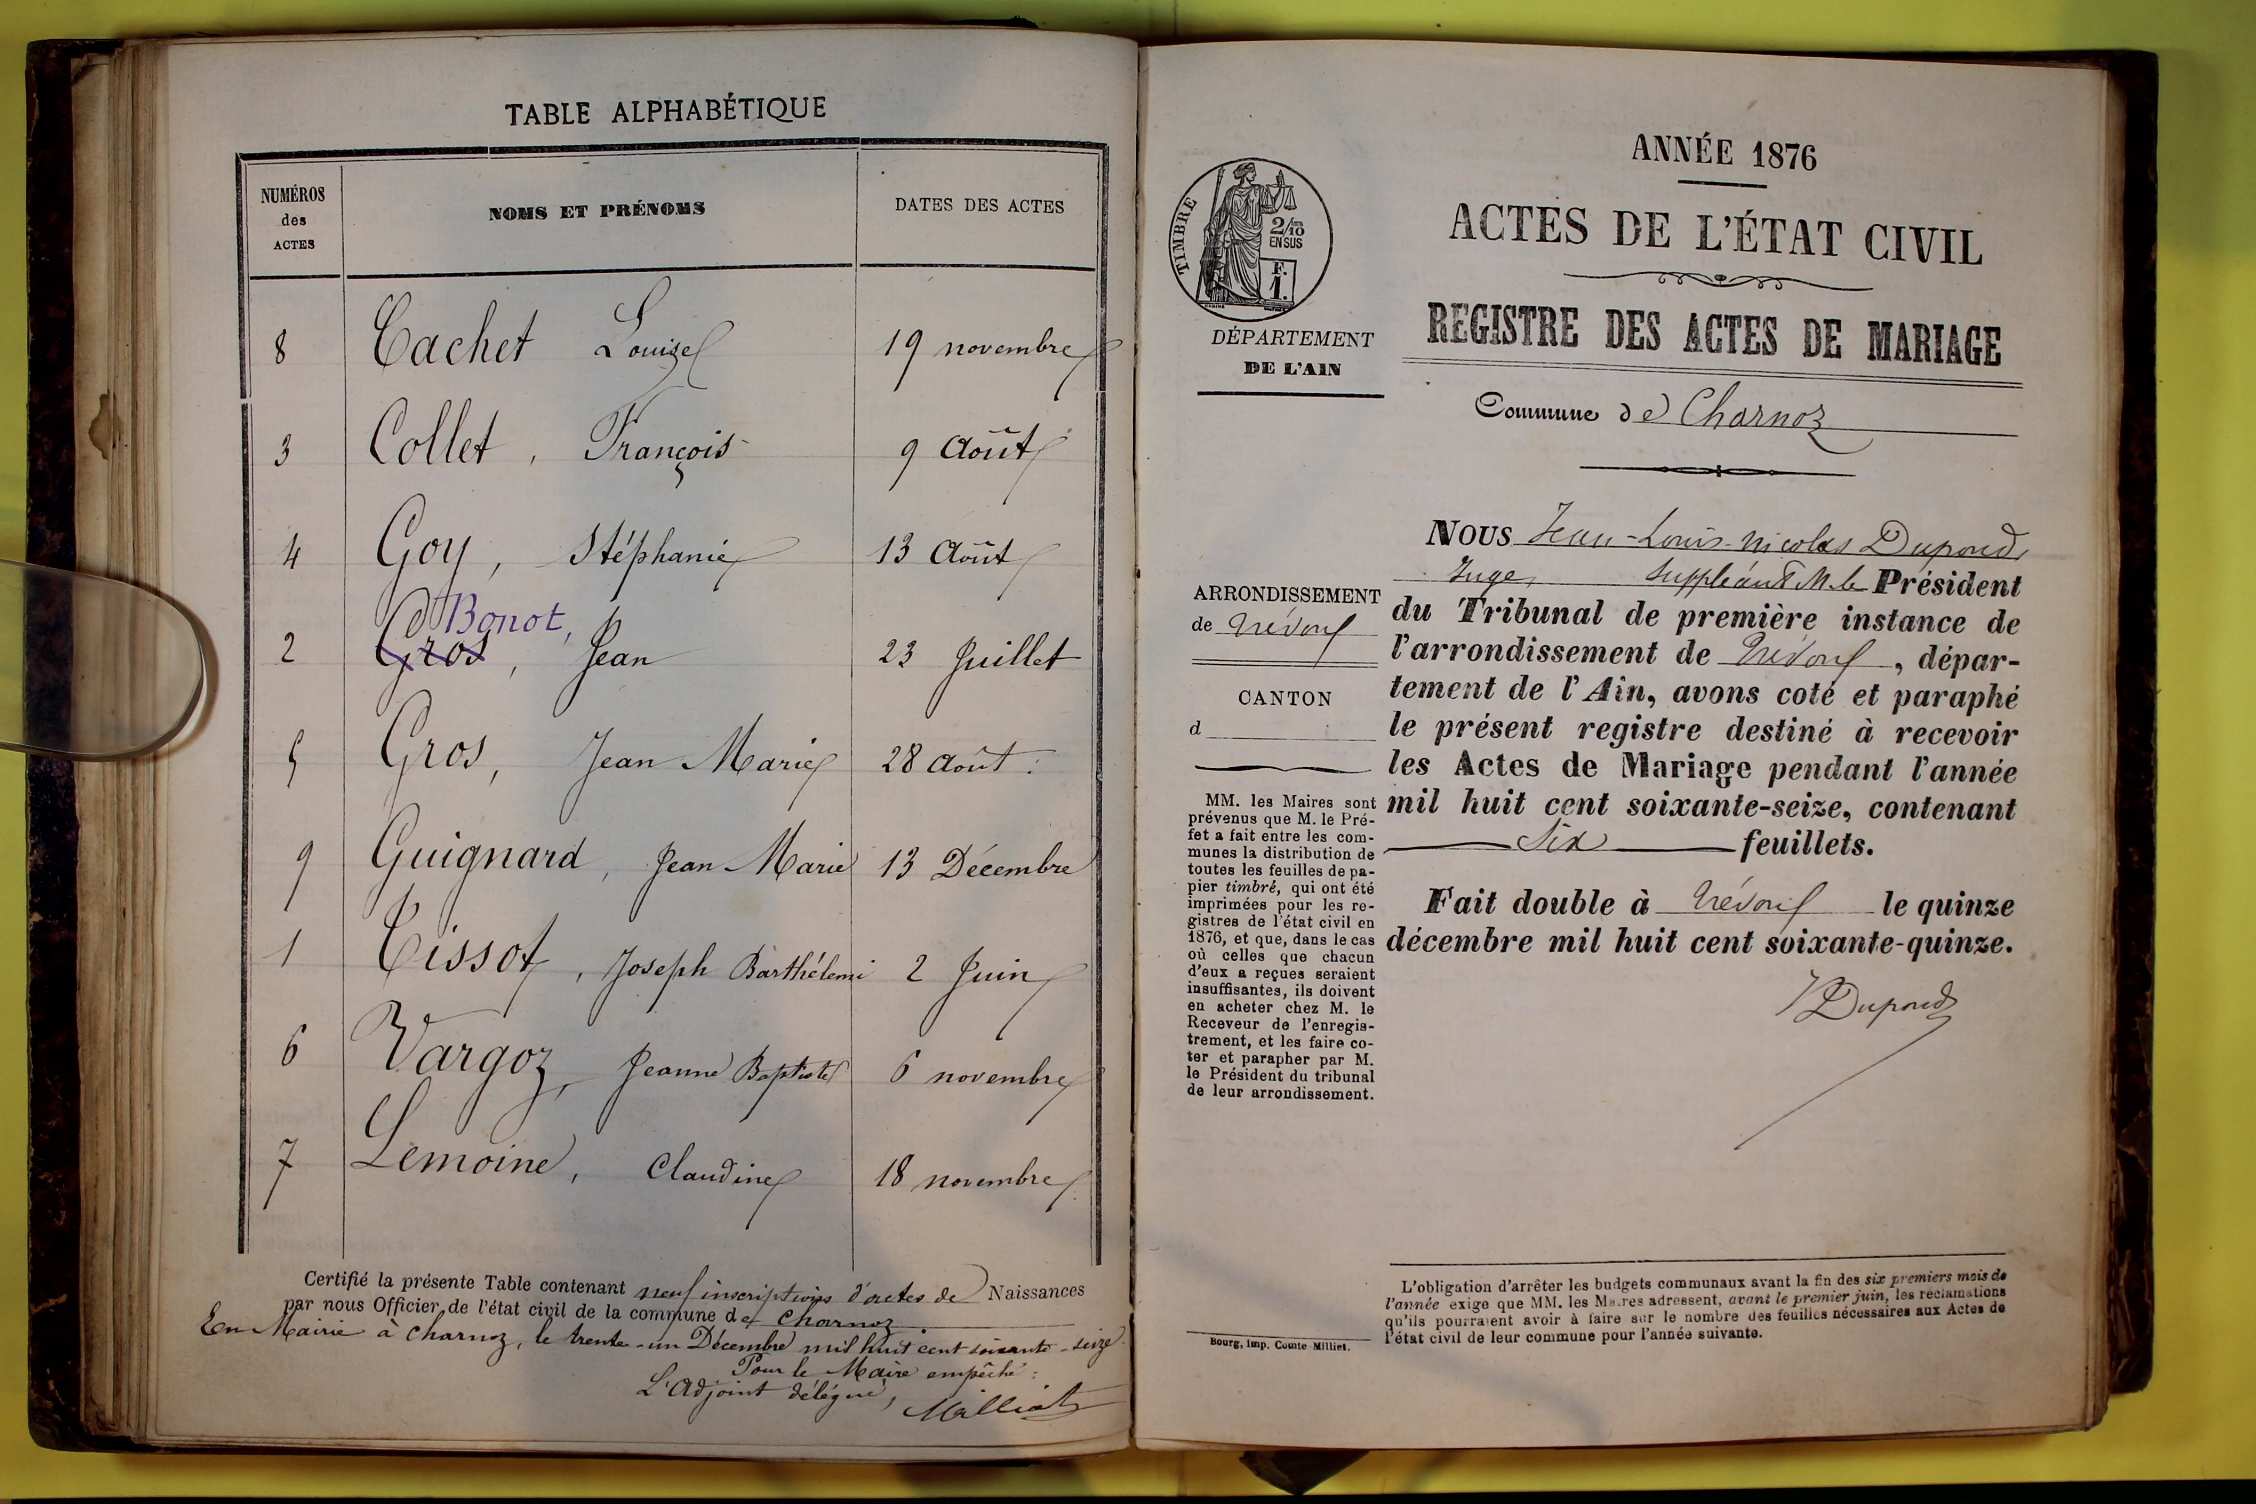 TABLE ALPHABÉTIQUE
NUMÉROS des ACTES NOMS ET PRÉNOMS DATES DES ACTES
8 Cachet Louise 19 novembre
3 Collet, François 9 Août
4 Goy, Stéphanie 13 Août
Bonot,
2 Gros, Jean 23 Juillet
5 Gros, Jean Marie 28 Août.
9 Guignard, Jean Marie 13 Décembre
1 Tissot, Joseph Barthélemi 2 Juin
6 Vargoz, Jeanne Baptiste 6 novembre
7 Lemoine, Claudine 18 novembre
Certifié la présente Table contenant neuf inscriptions d'actes de Naissances
par nous Officier de l'état civil de la commune de Charnoz.
En Mairie à Charnoz, le trente-un Décembre mil huit cent soixante-seize
Pour le Maire empêché:
L'Adjoint délégué,
ANNÉE 1876
ACTES DE L'ÉTAT CIVIL
REGISTRE DES ACTES DE MARIAGE
TIMBRE
2/10
EN SUS
F.
1.
DÉPARTEMENT
DE L'AIN
Commune de Charnoz
ARRONDISSEMENT
de Trévoux
CANTON
d
MM. les Maires sont
prévenus que M. le Pré-
fet a fait entre les com-
munes la distribution de
toutes les feuilles de pa-
pier timbré, qui ont été
imprimées pour les re-
gistres de l'état civil en
1876, et que, dans le cas
où celles que chacun
d'eux a reçues seraient
insuffisantes, ils doivent
en acheter chez M. le
Receveur de l'enregis-
trement, et les faire co-
ter et parapher par M.
le Président du tribunal
de leur arrondissement.
NOUS Jean-Louis-Nicolas Dupond,
Juge suppléant M. le Président
du Tribunal de première instance de
l'arrondissement de Trévoux, dépar-
tement de l'Ain, avons coté et paraphé
le présent registre destiné à recevoir
les Actes de Mariage pendant l'année
mil huit cent soixante-seize, contenant
Six feuillets.
Fait double à Trévoux le quinze
décembre mil huit cent soixante-quinze.
Dupond
L'obligation d'arrêter les budgets communaux avant la fin des six premiers mois de
l'année exige que MM. les Maires adressent, avant le premier juin, les réclamations
qu'ils pourraient avoir à faire sur le nombre des feuilles nécessaires aux Actes de
l'état civil de leur commune pour l'année suivante.
Bourg, imp. Comte-Milliet.